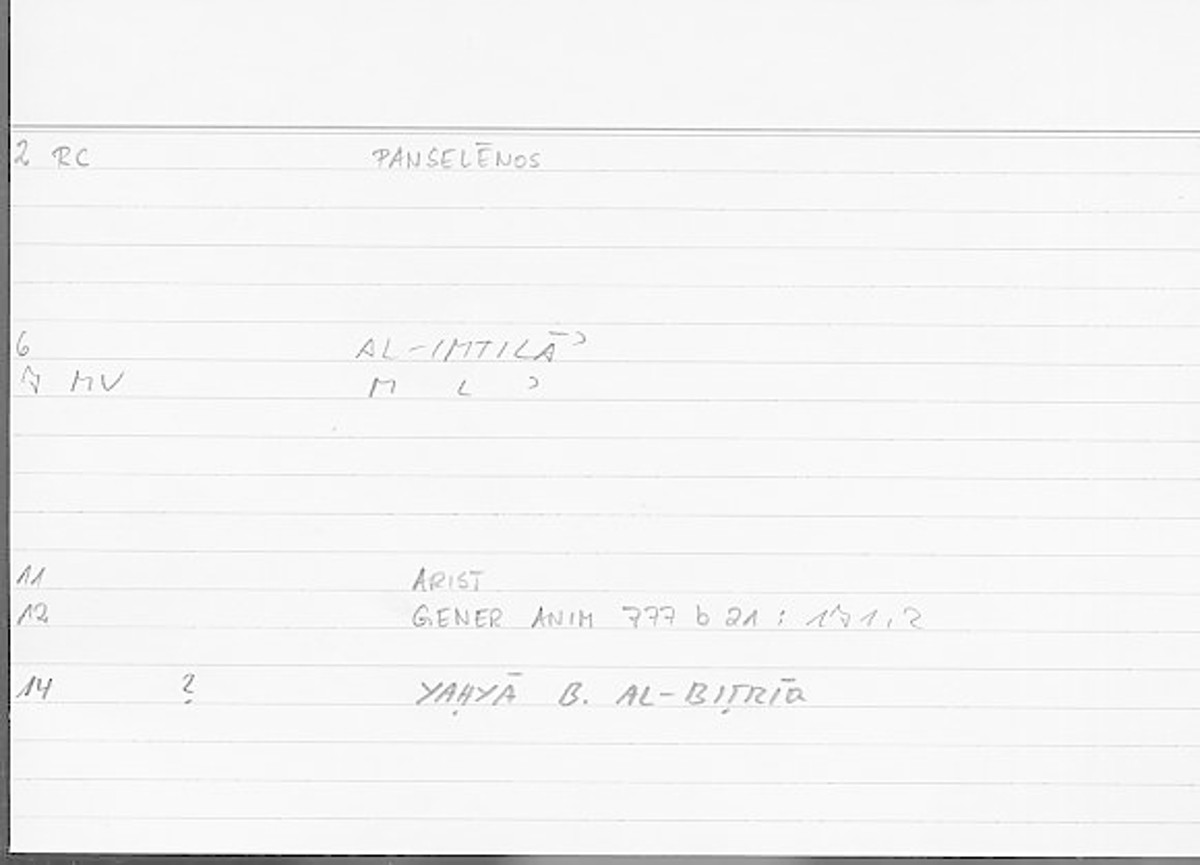 2 RC PANSELĒNOS
6 AL-IMTILĀʾ
7 MV M L ʾ
11 ARIST
12 GENER ANIM 777 b 21 : 171,2
14 ? YAḤYĀ B. AL-BIṬRĪQ